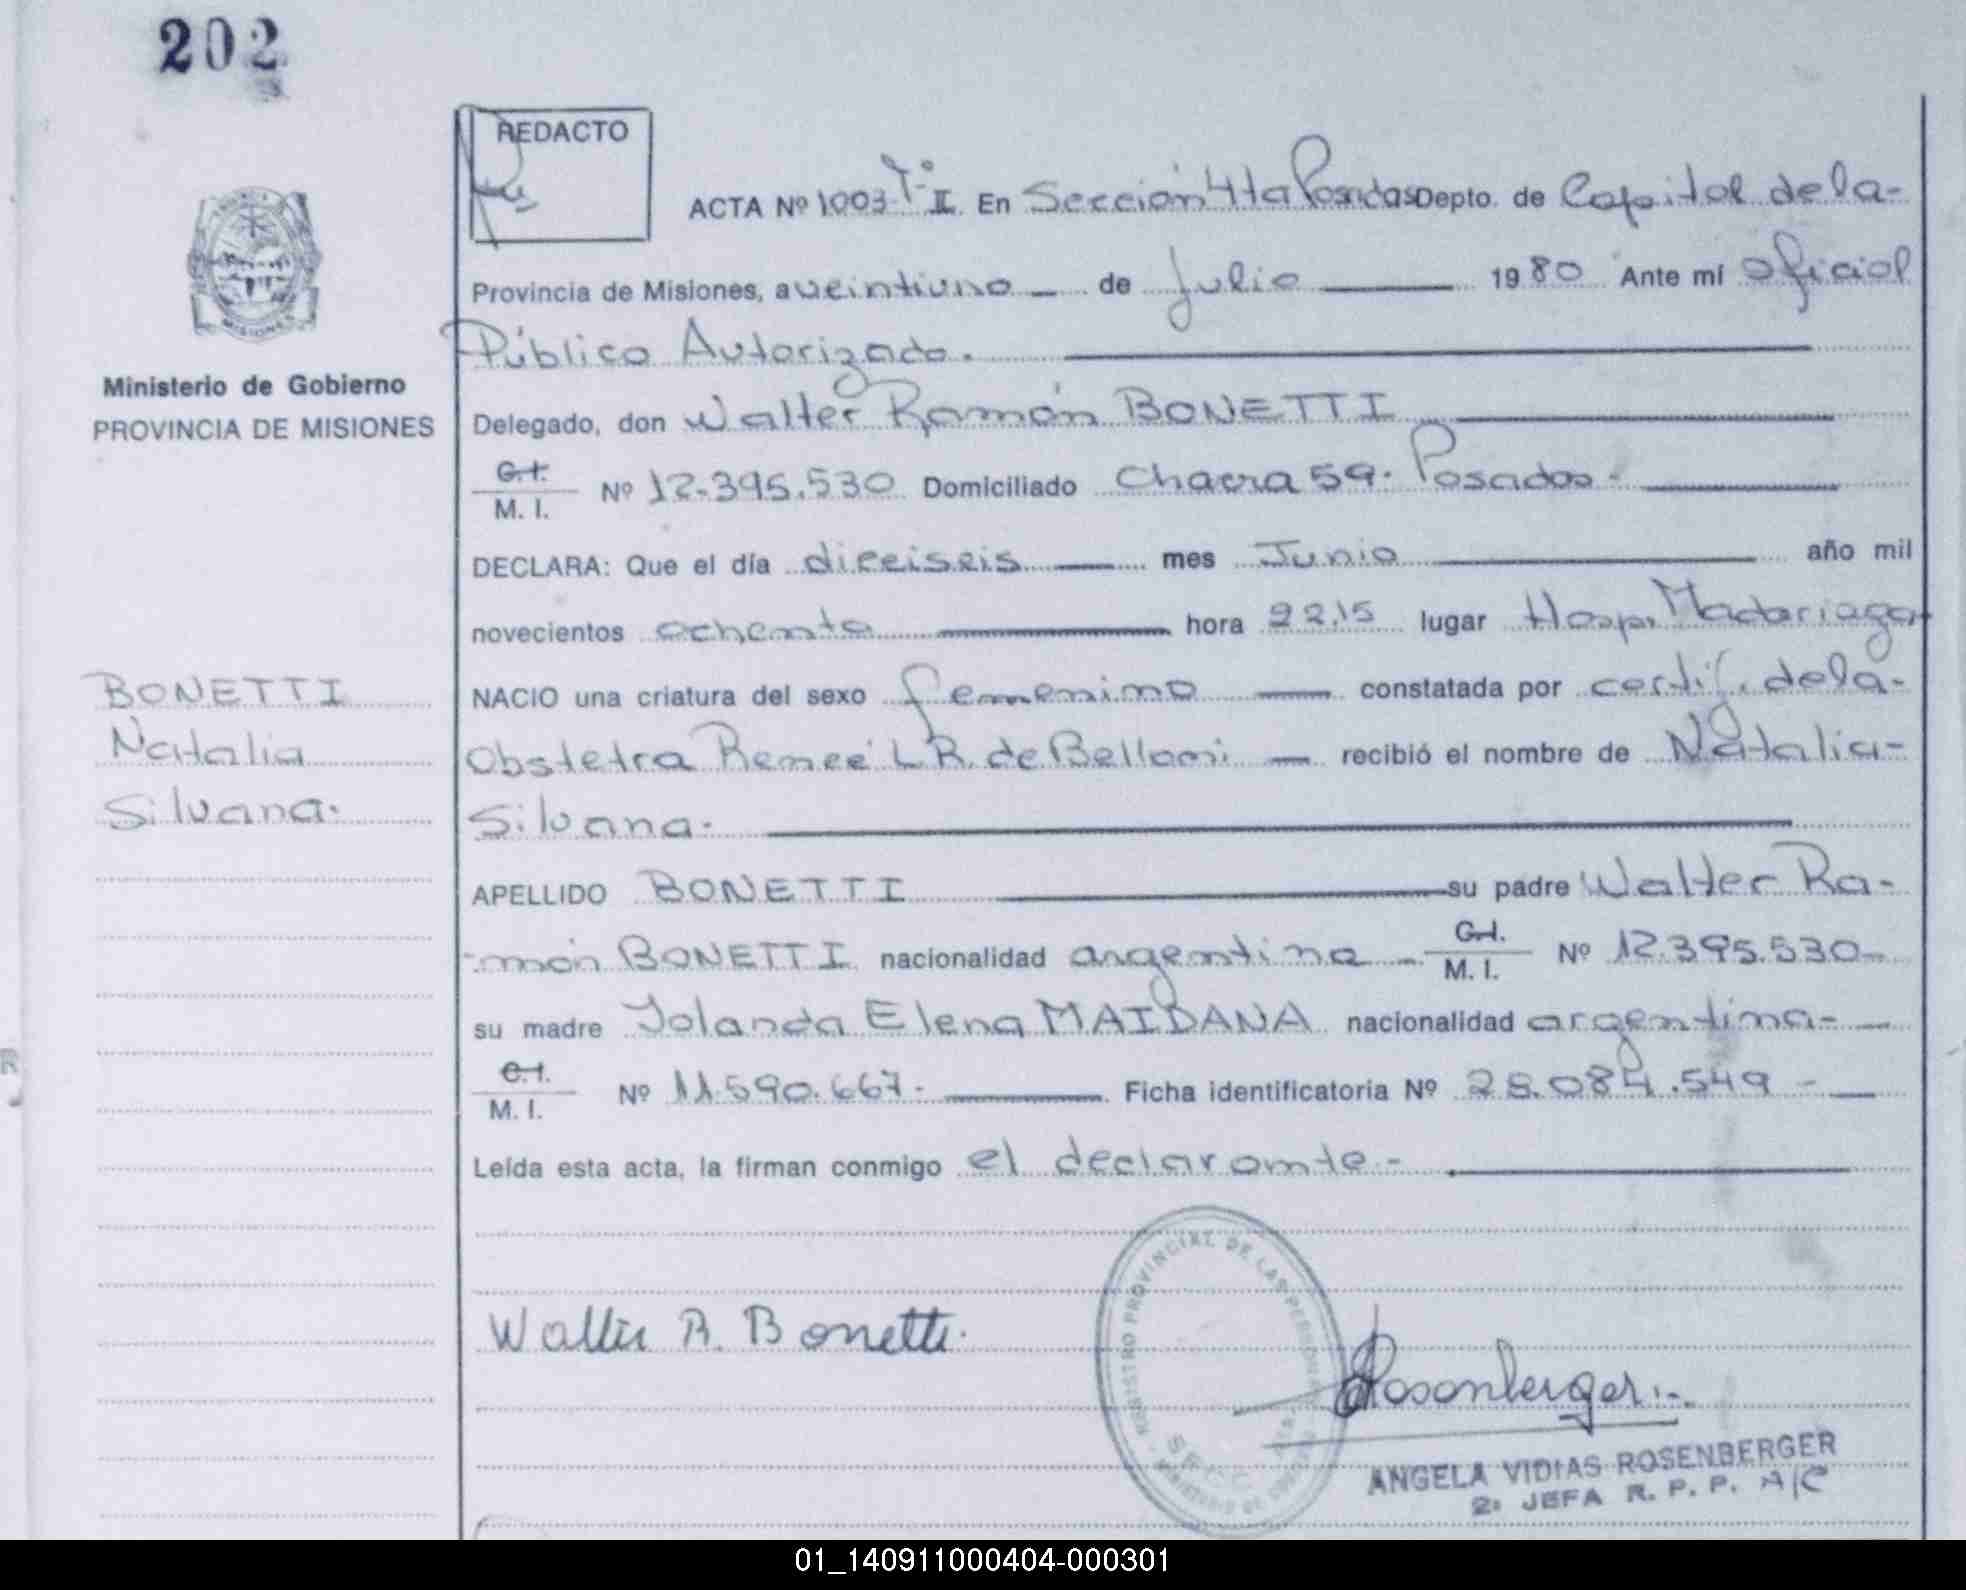 202
REDACTO
ACTA Nº 1003 Tº II En Sección 4ta Posadas Depto. de Capital de la-
Provincia de Misiones, a veintiuno — de Julio — 1980 Ante mí Oficial
Público Autorizado.
Ministerio de Gobierno
PROVINCIA DE MISIONES
Delegado, don Walter Ramón BONETTI
C.I.
M. I. Nº 12.395.530 Domiciliado Chacra 59. Posadas-
DECLARA: Que el día dieciseis — mes Junio — año mil
novecientos ochenta — hora 22,15 lugar Hosp. Madariaga
BONETTI
Natalia
Silvana.
NACIO una criatura del sexo femenino — constatada por certif. de la-
Obstetra Reneé L.R. de Belloni — recibió el nombre de Natalia-
Silvana.
APELLIDO BONETTI su padre Walter Ra-
-món BONETTI nacionalidad argentina - C.I.
M. I. Nº 12.395.530-
su madre Yolanda Elena MAIDANA nacionalidad argentina-
C.I.
M. I. Nº 11.590.667- Ficha identificatoria Nº 28.084.549 -
Leída esta acta, la firman conmigo el declarante-
Walter R. Bonetti.
REGISTRO PROVINCIAL DE LAS PERSONAS
Rosenberger
ANGELA VIDIAS ROSENBERGER
2ª JEFA R. P. P. A/C
01_140911000404-000301